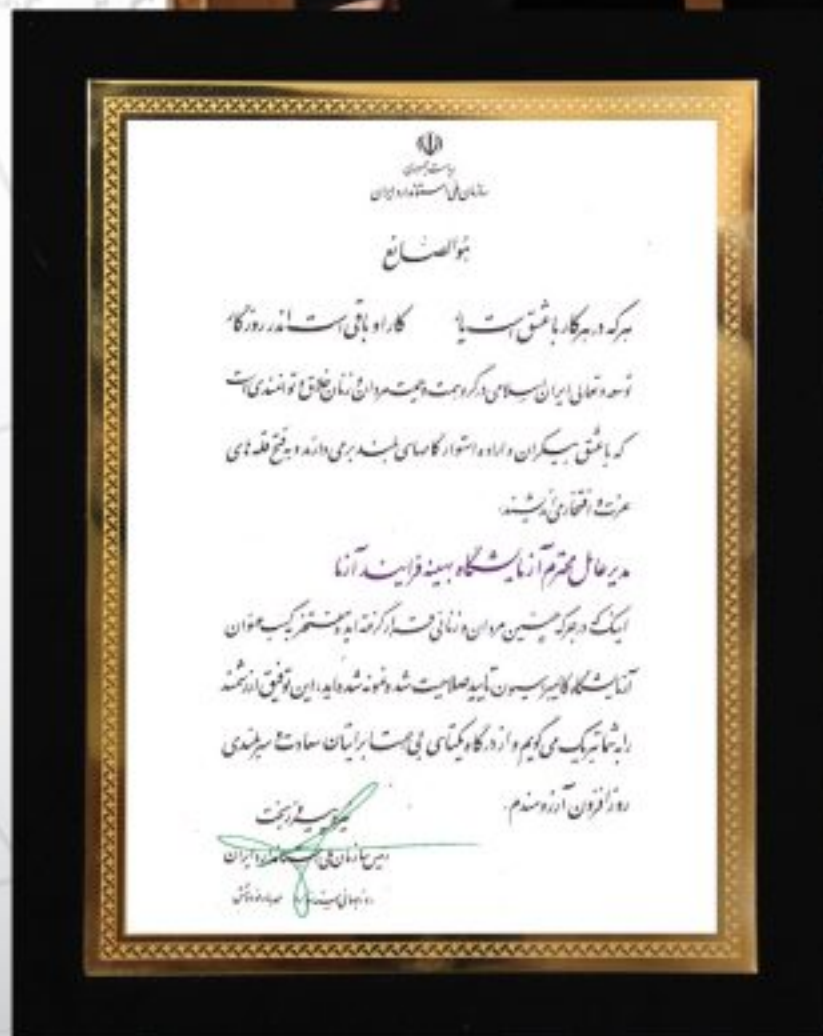 ریاست جمهوری
سازمان ملی استاندارد ایران
هوالصانع
هرکه در هرکار با عشق است یار کار او باقی است اندر روزگار
توسعه و تعالی ایران اسلامی در گرو همت و حمیت مردان و زنان خلاق و توانمندی است
که با عشق بیکران و اراده استوار گامهای بلند برمی دارند و به فتح قله های
عزت و افتخار می اندیشند.
مدیر عامل محترم آزمایشگاه بهینه فرایند آزما
اینک که در جرگه چنین مردان و زنانی قرار گرفته اید و مفتخر به کسب عنوان
آزمایشگاه کالیبراسیون تأیید صلاحیت شده نمونه شده اید، این توفیق ارزشمند
را به شما تبریک می گویم و از درگاه یکتای بی همتا برایتان سعادت و سربلندی
روزافزون آرزومندم.
نیره پیروزبخت
رئیس سازمان ملی استاندارد ایران
روز جهانی استاندارد